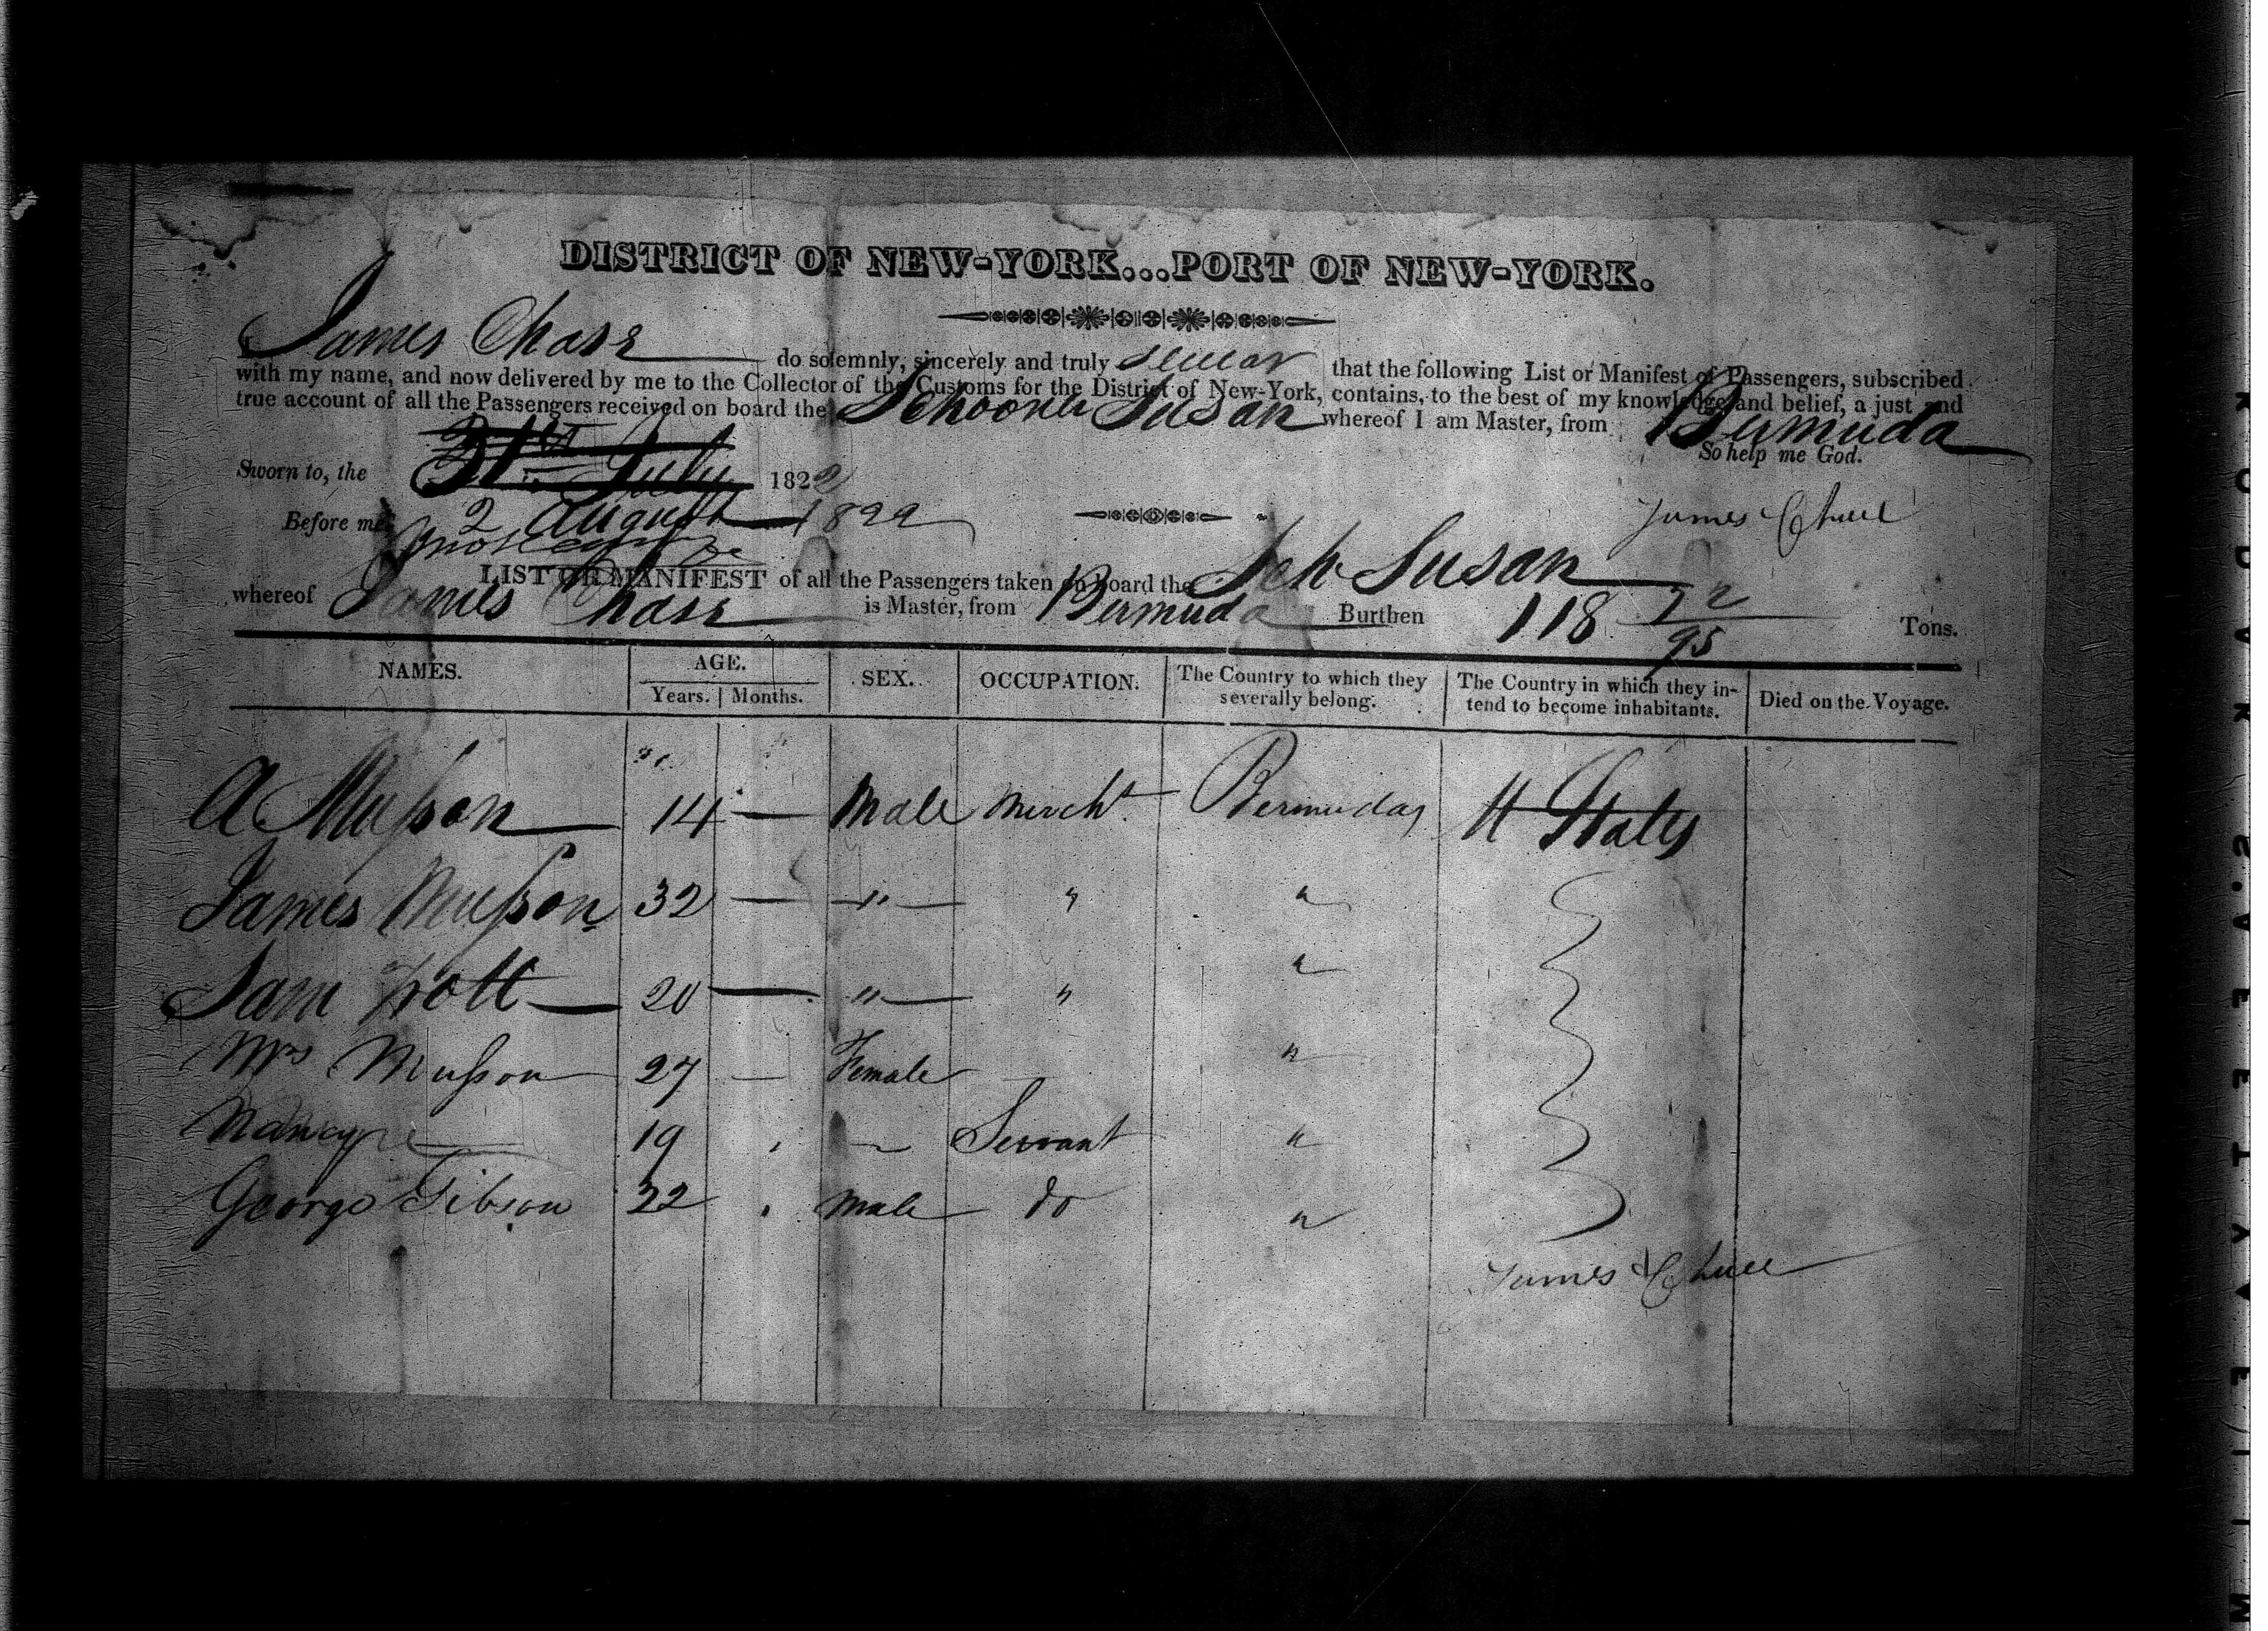 DISTRICT OF NEW-YORK...PORT OF NEW-YORK.
I James Chase do solemnly, sincerely and truly swear that the following List or Manifest of Passengers, subscribed
with my name, and now delivered by me to the Collector of the Customs for the District of New-York, contains, to the best of my knowledge and belief, a just and
true account of all the Passengers received on board the Schooner Susan whereof I am Master, from Bermuda
So help me God.
Sworn to, the 31st July 1822
2 August 1822
Before me
James Chase
LIST OR MANIFEST of all the Passengers taken on board the Sch Susan
whereof James Chase is Master, from Bermuda Burthen 118 72/95 Tons.
NAMES. AGE. SEX. OCCUPATION. The Country to which they severally belong. The Country in which they intend to become inhabitants. Died on the Voyage.
Years. Months.
A Musson 14 — Male Mercht Bermudas U States
James Musson 32 — " " "
Sam Trott 20 — " " "
Mrs Musson 27 — Female — "
Nancy 19 Servant "
George Gibson 22 Male do "
James Chase